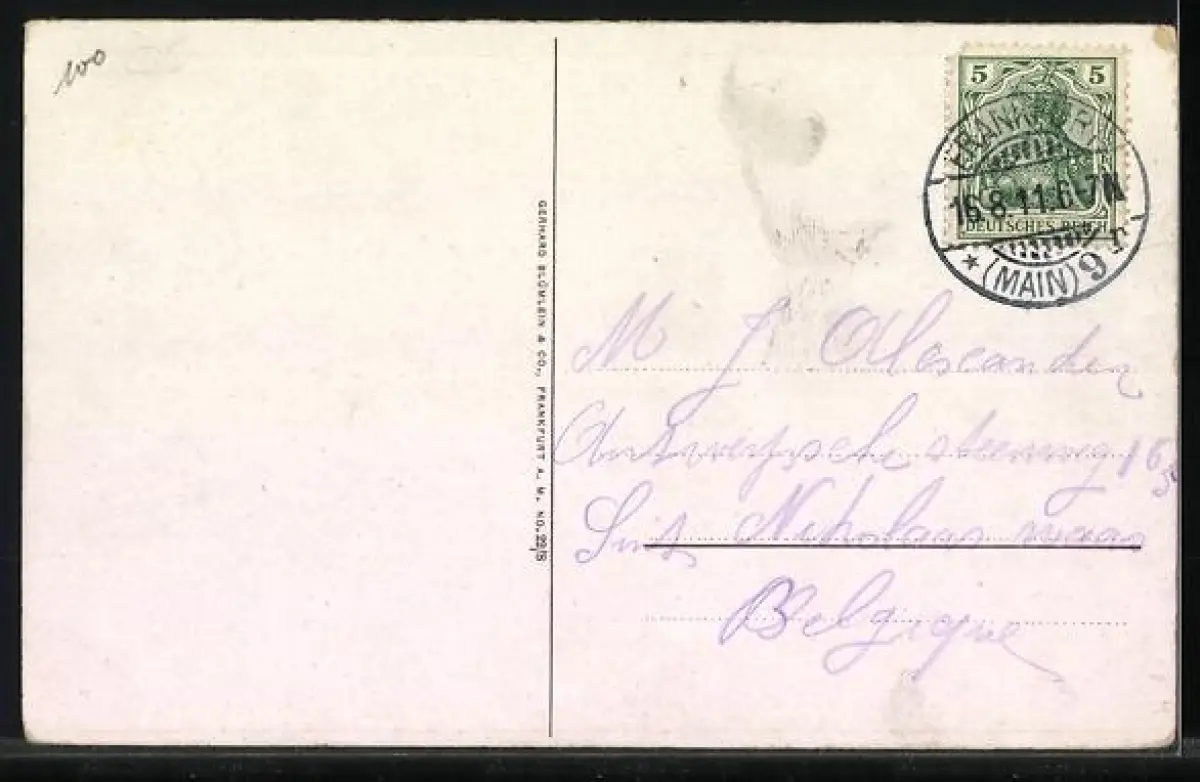 100
GERHARD BLÜMLEIN & CO., FRANKFURT A. M. NO. 22/5
5 5
DEUTSCHES REICH
FRANKFUR
16.8.11.6-7N
* (MAIN) 9
M J. Alexander
Antwerpsche steenweg 163
Sint Nikolaas waas
Belgique